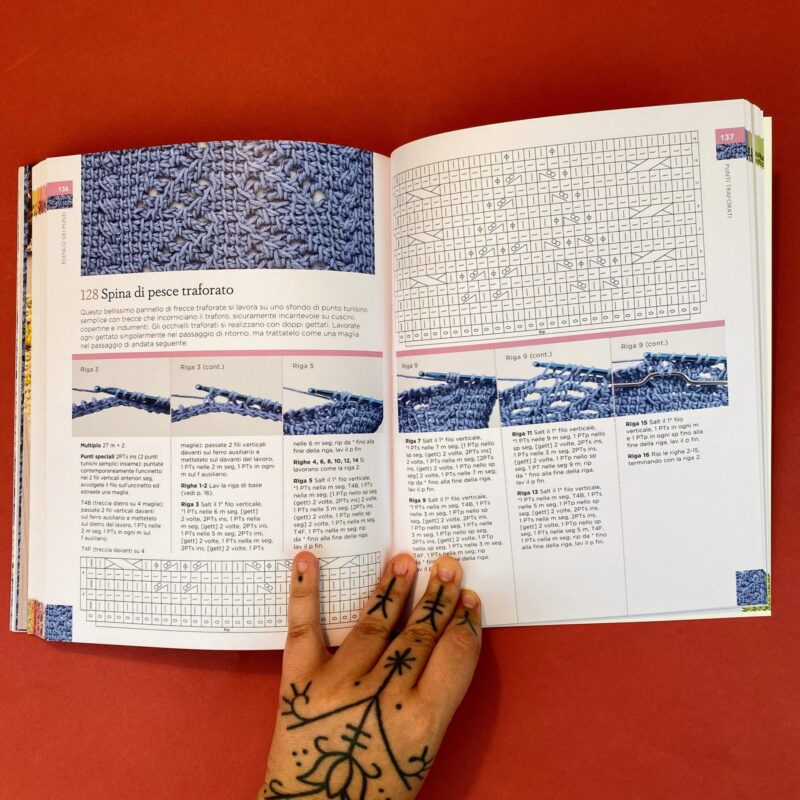 136
ELENCO DEI PUNTI
128 Spina di pesce traforato
Questo bellissimo pannello di frecce traforate si lavora su uno sfondo di punto tunisino
semplice con trecce che incorniciano il traforo, sicuramente incantevole su cuscini,
copertine e indumenti. Gli occhielli traforati si realizzano con doppi gettati. Lavorate
ogni gettato singolarmente nel passaggio di ritorno, ma trattatelo come una maglia
nel passaggio di andata seguente.
Riga 3
Riga 3 (cont.)
Riga 5
Multiplo 27 m + 2.
Punti speciali 2PTs ins (2 punti
tunisini semplici insieme): puntate
contemporaneamente l'uncinetto
nei 2 fili verticali anteriori seg,
avvolgete il filo sull'uncinetto ed
estraete una maglia.
T4B (treccia dietro su 4 maglie):
passate 2 fili verticali davanti
sul ferro ausiliario e mettetelo
sul dietro del lavoro, 1 PTs nelle
2 m seg, 1 PTs in ogni m sul
f ausiliario.
T4F (treccia davanti su 4
maglie): passate 2 fili verticali
davanti sul ferro ausiliario e
mettetelo sul davanti del lavoro,
1 PTs nelle 2 m seg, 1 PTs in ogni
m sul f ausiliario.
Righe 1-2 Lav la riga di base
(vedi p. 16).
Riga 3 Salt il 1° filo verticale,
*1 PTs nelle 6 m seg, [gett]
2 volte, 2PTs ins, 1 PTs nella
m seg, [gett] 2 volte, 2PTs ins,
1 PTs nelle 5 m seg, [gett]
2 volte, 2PTs ins, 1 PTs nella m
seg, [gett] 2 volte, 2PTs ins, 1 PTs
nelle 6 m seg; rip da * fino alla
fine della riga, lav il p fin.
Righe 4, 6, 8, 10, 12, 14 Si
lavorano come la riga 2.
Riga 5 Salt il 1° filo verticale,
*1 PTs nella m seg, T4B, 1 PTs
nella m seg, [1 PTp nello sp seg
(gett) 2 volte, 2PTs ins] 2 volte,
1 PTs nelle 3 m seg, [2PTs
ins, (gett) 2 volte, 1 PTp nello sp
seg] 2 volte, 1 PTs nella m seg,
T4F, 1 PTs nella m seg, rip
da * fino alla fine della riga,
lav il p fin.
Rip
137
PUNTI TRAFORATI
Rip
Riga 9
Riga 9 (cont.)
Riga 9 (cont.)
Riga 7 Salt il 1° filo verticale,
*1 PTs nelle 7 m seg, [1 PTp nello
sp seg, (gett) 2 volte, 2PTs ins]
2 volte, 1 PTs nella m seg, [2PTs
ins, (gett) 2 volte, 1 PTp nello sp
seg] 2 volte, 1 PTs nelle 7 m seg;
rip da * fino alla fine della riga,
lav il p fin.
Riga 9 Salt il 1° filo verticale,
*1 PTs nella m seg, T4B, 1 PTs
nelle 3 m seg,
Riga 11 Salt il 1° filo verticale,
*1 PTs nelle 9 m seg, 1 PTp nello
sp seg, [gett] 2 volte, 2PTs ins,
1 PTs nelle 3 m seg, 2PTs ins,
[gett] 2 volte, 1 PTp nello sp
seg, 1 PT nelle seg 9 m; rip
da * fino alla fine della riga,
lav il p fin.
Riga 13 Salt il 1° filo verticale,
*1 PTs nella m seg, T4B, 1 PTs
nelle 5 m seg, 1 PTp nello sp
seg, [gett] 2 volte, 2PTs ins,
1 PTs nella m seg, 2PTs ins,
[gett] 2 volte, 1 PTp nello sp
seg, 1 PTs nelle seg 5 m, T4F,
1 PTs nella m seg; rip da *
fino alla fine della riga,
lav il p fin.
Riga 15 Salt il 1° filo
verticale, 1 PTs in ogni m
e 1 PTp in ogni sp fino alla
fine della riga, lav il p fin.
Riga 16 Rip le righe 2-15,
terminando con la riga 2.